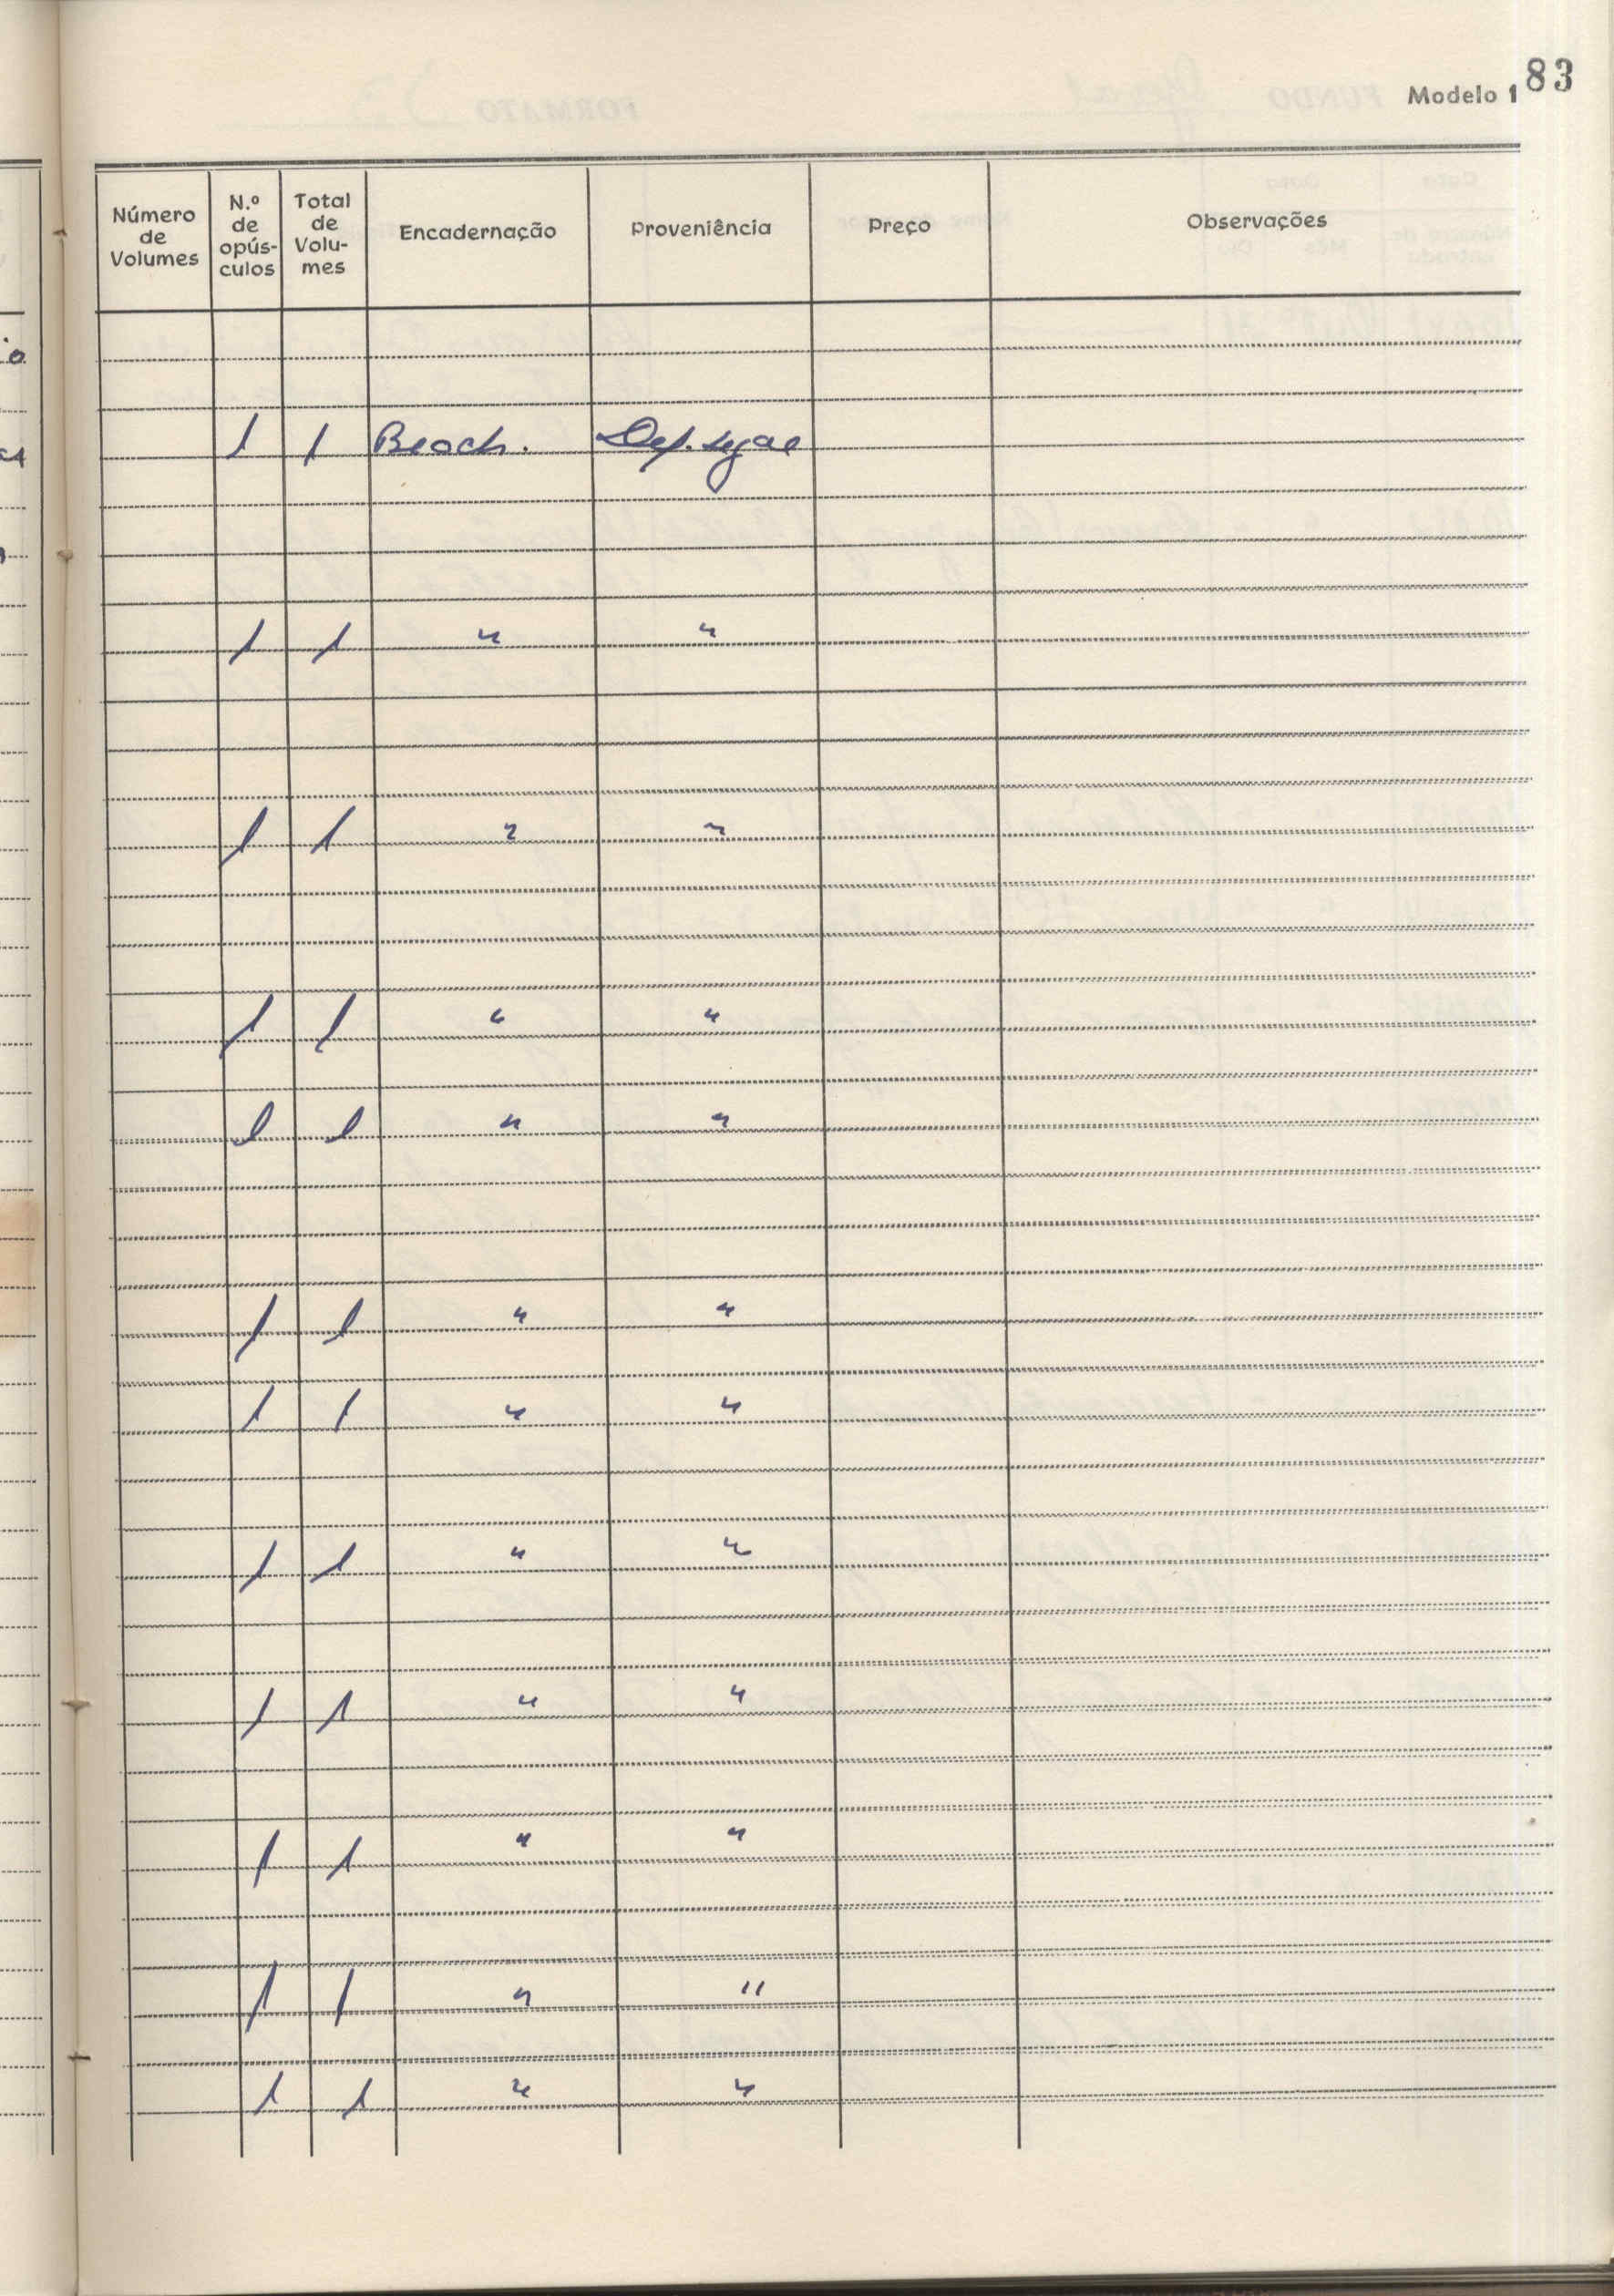 Modelo 1 83
Número de Volumes N.º de opús- culos Total de Volu- mes Encadernação Proveniência Preço Observações
1 1 Broch. Dep. Legal
1 1 " "
1 1 " "
1 1 " "
1 1 " "
1 1 " "
1 1 " "
1 1 " "
1 1 " "
1 1 " "
1 1 " "
1 1 " "